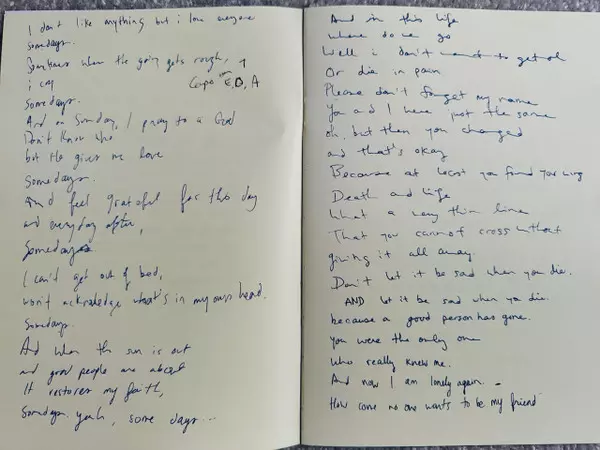 I don't like anything but i love everyone
Somedays.
Sometimes when the going gets rough,
i cry
Capo
E, D, A
Somedays.
And on Sunday, I pray to a God
Don't know who
but He gives me love
Somedays.
and feel grateful for this day
and everyday after,
Somedays
I can't get out of bed,
won't acknowledge what's in my own head.
Somedays.
And when the sun is out
and good people are about
It restores my faith,
Somedays. yeah, some days...
And in this life
Where do we go
Well i don't want to get old
Or die in pain
Please don't forget my name
You and I were just the same
oh, but then you changed
and that's okay
Because at least you found your wing
Death and life
What a very thin line
That you cannot cross without
giving it all away.
Don't let it be sad when you die.
AND let it be sad when you die.
because a good person has gone.
You were the only one
who really knew me.
And now I am lonely again.
How come no one wants to be my friend